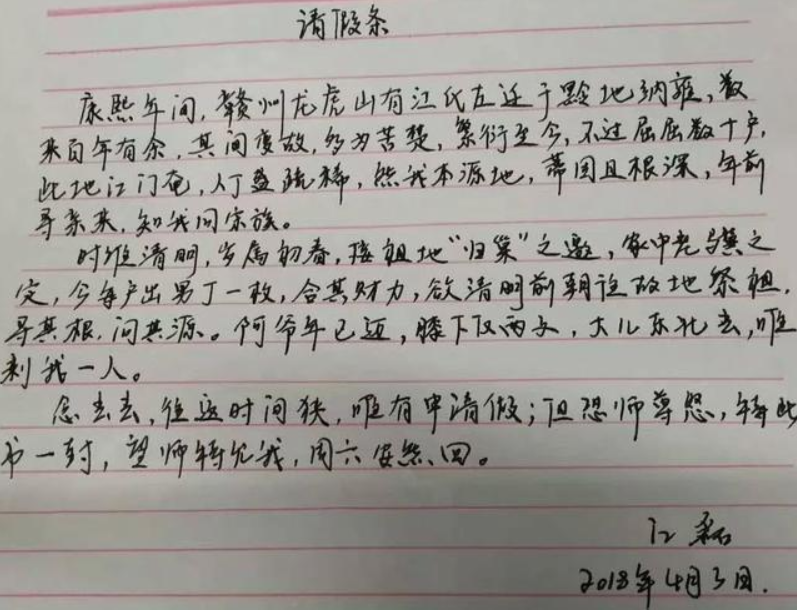 请假条
康熙年间,赣州龙虎山有江氏左迁于黔地纳雍,数
来百年有余,其间变故,多为苦楚,繁衍至今,不过屈屈数十户,
此地江门奄,人丁盛疏稀,然我本源地,蒂固且根深,年前
寻亲来,知我同宗族。
时维清明,岁属初春,接祖地“归巢”之邀,家中老
定,今每户出男丁一枚,合其财力,欲清明前朝往故地祭祖,
寻其根,问其源。阿爷年已迈,膝下仅两子,大儿东北去,唯
剩我一人。
念去去,往返时间狭,唯有申请假;但恐师尊怒,特此
书一封,望师特允我,周六安然回。
江磊
2018年4月3日.